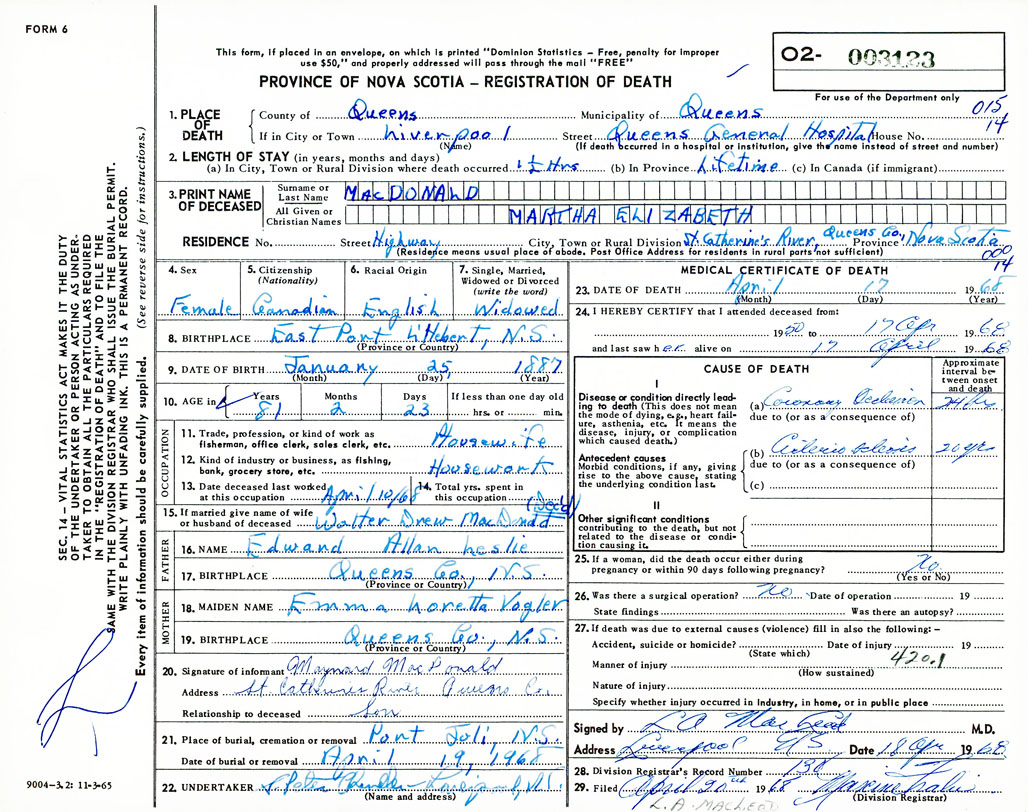 FORM 6
This form, if placed in an envelope, on which is printed "Dominion Statistics – Free, penalty for improper
use $50," and properly addressed will pass through the mail "FREE"
PROVINCE OF NOVA SCOTIA – REGISTRATION OF DEATH
O2- 003123
For use of the Department only
015
14
1. PLACE OF DEATH
County of Queens Municipality of Queens
If in City or Town Liverpool Street Queens General Hospital House No.
(Name) (If death occurred in a hospital or institution, give the name instead of street and number)
2. LENGTH OF STAY (in years, months and days)
(a) In City, Town or Rural Division where death occurred 1½ Hrs (b) In Province Lifetime (c) In Canada (if immigrant)
3. PRINT NAME OF DECEASED
Surname or Last Name MacDONALD
All Given or Christian Names MARTHA ELIZABETH
RESIDENCE No. Street Highway City, Town or Rural Division St. Catherine's River, Queens Co., Province Nova Scotia
(Residence means usual place of abode. Post Office Address for residents in rural parts not sufficient)
000
14
4. Sex 5. Citizenship (Nationality) 6. Racial Origin 7. Single, Married, Widowed or Divorced (write the word)
Female Canadian English Widowed
8. BIRTHPLACE East Port L'Hebert, N.S.
(Province or Country)
9. DATE OF BIRTH January 25, 1887
(Month) (Day) (Year)
10. AGE in Years Months Days If less than one day old
81 2 23 hrs. or min.
OCCUPATION
11. Trade, profession, or kind of work as fisherman, office clerk, sales clerk, etc. Housewife
12. Kind of industry or business, as fishing, bank, grocery store, etc. Housework
13. Date deceased last worked at this occupation April 10/68 14. Total yrs. spent in this occupation
15. If married give name of wife or husband of deceased Walter Drew MacDonald (Dec'd)
FATHER
16. NAME Edward Allan Leslie
17. BIRTHPLACE Queens Co., N.S.
(Province or Country)
MOTHER
18. MAIDEN NAME Emma Loretta Vogler
19. BIRTHPLACE Queens Co., N.S.
(Province or Country)
20. Signature of informant Maynard MacDonald
Address St Catherines River Queens Co.
Relationship to deceased Son
21. Place of burial, cremation or removal Port Joli, N.S.
Date of burial or removal April 19, 1968
22. UNDERTAKER
(Name and address)
MEDICAL CERTIFICATE OF DEATH
23. DATE OF DEATH April 17 1968
(Month) (Day) (Year)
24. I HEREBY CERTIFY that I attended deceased from:
1950 to 17 Apr 1968
and last saw her alive on 17 April 1968
CAUSE OF DEATH
Approximate interval between onset and death
I
Disease or condition directly leading to death (This does not mean the mode of dying, e.g., heart failure, asthenia, etc. It means the disease, injury, or complication which caused death.)
(a) Coronary Occlusion 24 hrs
due to (or as a consequence of)
Antecedent causes
Morbid conditions, if any, giving rise to the above cause, stating the underlying condition last.
(b) 20 yrs
due to (or as a consequence of)
(c)
II
Other significant conditions contributing to the death, but not related to the disease or condition causing it.
25. If a woman, did the death occur either during pregnancy or within 90 days following pregnancy? No.
(Yes or No)
26. Was there a surgical operation? No Date of operation 19
State findings Was there an autopsy?
27. If death was due to external causes (violence) fill in also the following: –
Accident, suicide or homicide? Date of injury 19
(State which)
420.1
Manner of injury
(How sustained)
Nature of injury
Specify whether injury occurred in Industry, in home, or in public place
Signed by L A MacLeod M.D.
Address Liverpool NS Date 18 Apr 1968
28. Division Registrar's Record Number 138
29. Filed April 20th 1968
(Division Registrar)
L.A. MACLEOD
SEC. 14 – VITAL STATISTICS ACT MAKES IT THE DUTY
OF THE UNDERTAKER OR PERSON ACTING AS UNDER-
TAKER TO OBTAIN ALL THE PARTICULARS REQUIRED
IN THE "REGISTRATION OF DEATH" AND TO FILE THE
SAME WITH THE DIVISION REGISTRAR WHO SHALL ISSUE THE BURIAL PERMIT.
WRITE PLAINLY WITH UNFADING INK. THIS IS A PERMANENT RECORD.
Every item of information should be carefully supplied. (See reverse side for instructions.)
9004–3.2: 11-3-65